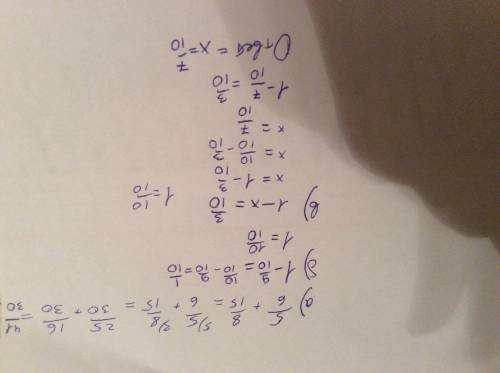 а) 5/6 + 8/15 = 5/5/6 + 2/8/15 = 25/30 + 16/30 = 41/30
б) 1 - 9/10 = 10/10 - 9/10 = 1/10
1 = 10/10
в) 1 - x = 3/10 1 = 10/10
x = 1 - 3/10
x = 10/10 - 3/10
x = 7/10
1 - 7/10 = 3/10
Ответ = x = 7/10